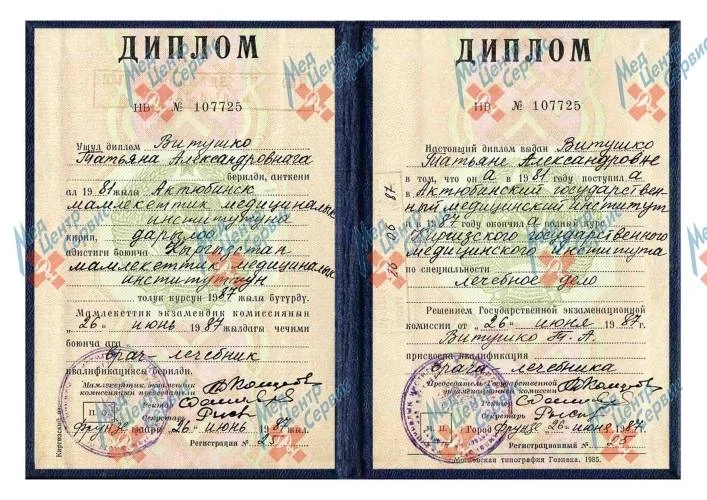 ДИПЛОМ
НВ № 107725
Ушул диплом Витушко
Татьяна Александровнага
берилди, анткени
ал 1981 жылы Актюбинск
мамлекеттик медициналык
институтуна
кирип, дарылоо
адистиги боюнча Кыргызстан
мамлекеттик медициналык
институтунун
толук курсун 1987 жылы бүтүрдү.
Мамлекеттик экзамендик комиссиянын
„26" июнь 1987 жылдагы чечими
боюнча ага
врач-лечебник
квалификациясы берилди.
Мамлекеттик экзаменник
комиссиянын председатели
Ректор
Секретарь
П. О.
Фрунзе шаары „26" июнь 1987 жыл.
Регистрация № 25
ДИПЛОМ
НВ № 107725
Настоящий диплом выдан Витушко
Татьяне Александровне
в том, что он а в 1981 году поступил а
в Актюбинский государствен-
ный медицинский институт
и в 1987 году окончил а полный курс
Киргизского государственного
медицинского института
по специальности
лечебное дело
Решением Государственной экзаменационной
комиссии от „26" июня 1987 г.
Витушко Т. А.
присвоена квалификация
врача-лечебника
Председатель Государственной
экзаменационной комиссии
Ректор
Секретарь
М. П.
Город Фрунзе „26" июня 1987 г.
Регистрационный № 25
Московская типография Гознака. 1985.
Мед Центр Сервис